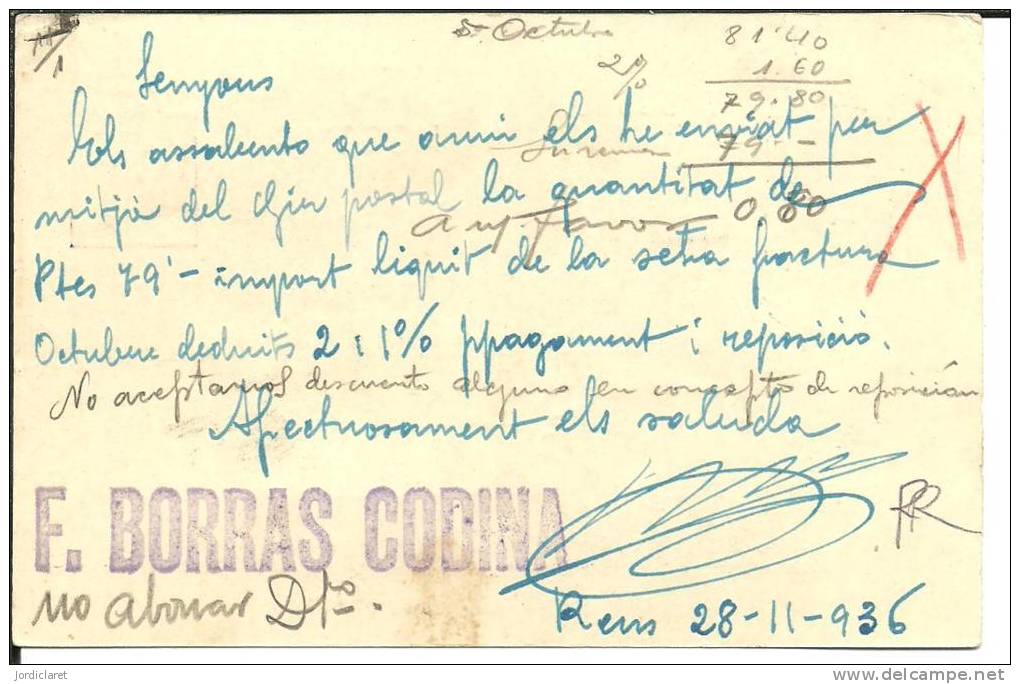 11/1
Sr Octubre
81'40
2%
1.60
Senyors
79.80
79--
Els assabento que avui els he enviat per
mitjà del Gir postal la quantitat de
a ny favor 0,80
Ptes 79'- import liquit de la seva factura
Octubre deduits 2 i 1% ppagament i reposició.
No aceptamos descuento alguno en concepto de reposición
Afectuosament els saluda
F. BORRAS CODINA
RR
no abonar Dto.
Reus 28-11-936
jordiclaret
www.delcampe.net